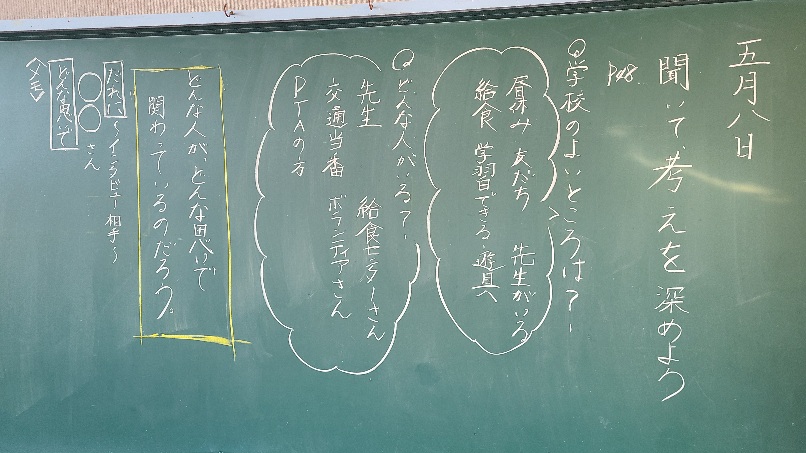 五月八日
聞いて、考えを深めよう
P48.
Q学校のよいところは？
昼休み 友だち 先生がいる
給食 学習できる 遊具
Qどんな人がいる？
先生 給食センターさん
交通当番 ボランティアさん
PTAの方
どんな人が、どんな思いで
関わっているのだろう。
だれに 〜インタビュー相手〜
○○さん
どんな思いで
〈メモ〉